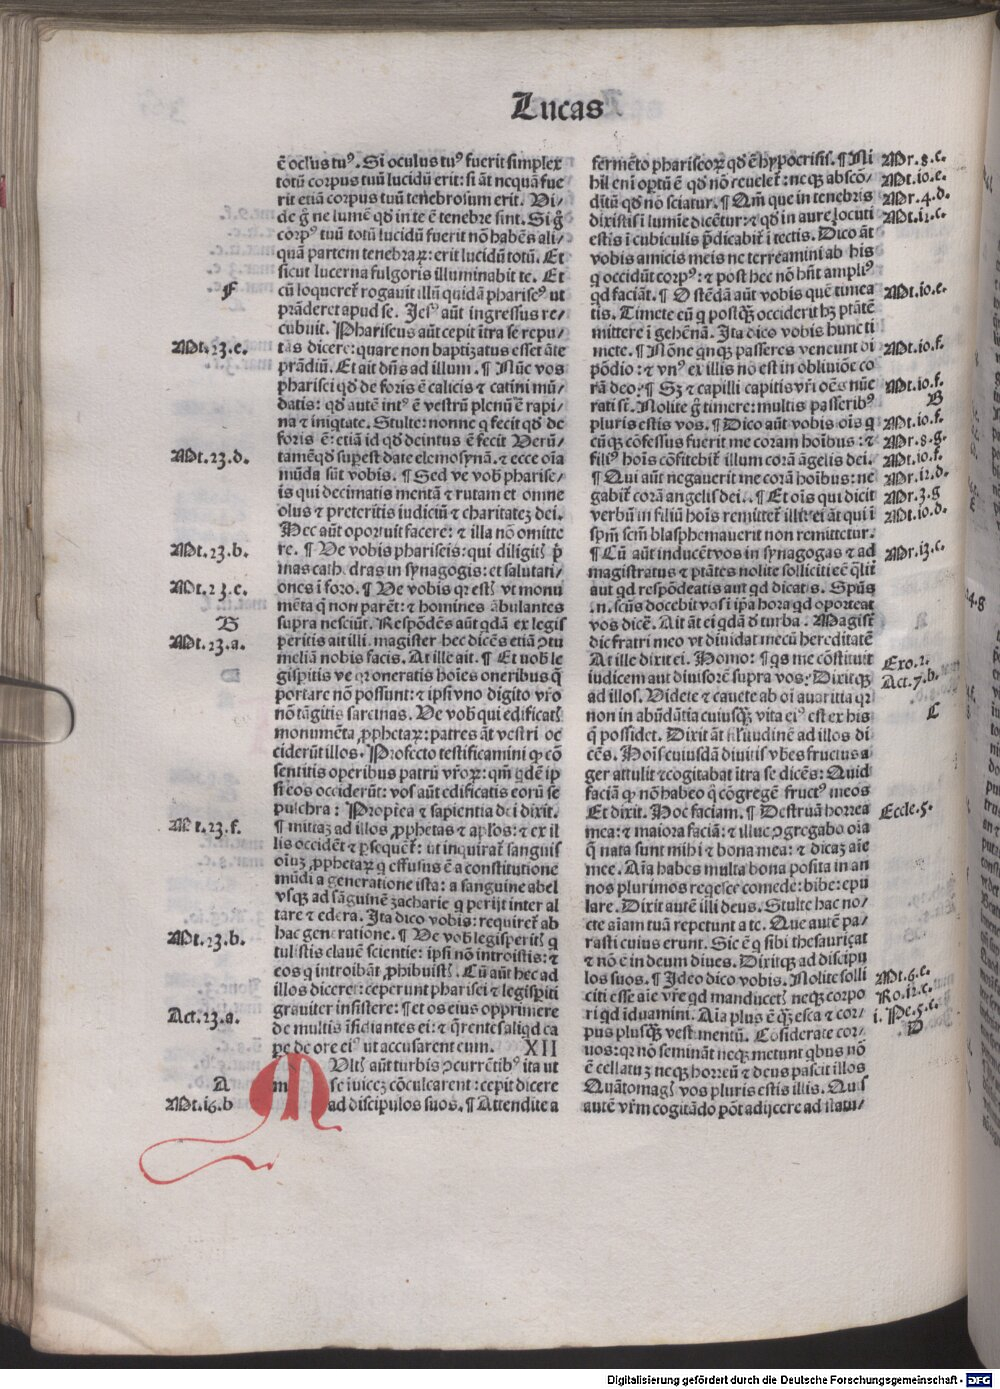 Lucas
ē ocl'us tuꝰ. Si oculus tuꝰ fuerit simplex
totū corpus tuū lucidū erit: si āt nequā fue
rit etiā corpus tuū tenebrosum erit. Vi⸗
de g̊ ne lumē qd̄ in te ē tenebre sint. Si g̊
corpꝰ tuū totū lucidū fuerit nō habēs ali⸗
quā partem tenebraꝝ: erit lucidū totū. Et
sicut lucerna fulgoris illuminabit te. Et
F
cū loqueret̄ rogauit illū quidā phariseꝰ ut
prāderet apud se. Jesꝰ aūt ingressus re⸗
cubuit. Phariseus aūt cepit ītra se repu⸗
Mt.23.e.
tās dicere: quare non baptizatus esset āte
prādiū. Et ait dn̄s ad illum. ¶ Nūc vos
pharisei qd̄ de foris ē calicis ⁊ catini mū⸗
datis: qd̄ autē intꝰ ē vestrū plenū ē rapi⸗
na ⁊ iniq̇tate. Stulte: nonne q̇ fecit qd̄ de
foris ē: etiā id qd̄ deintus ē fecit Verū⸗
Mt.23.d.
tamē qd̄ suꝑest date elemosynā. ⁊ ecce oīa
mūda sūt vobis. ¶ Sed ve vob̄ pharise⸗
is qui decimatis mentā ⁊ rutam et omne
olus ⁊ preteritis iudiciū ⁊ charitatez dei.
Hec aūt oportuit facere: ⁊ illa nō omitte
Mt.23.b.
re. ¶ Ve vobis phariseis: qui diligitꝭ p̄
mas cathedras in synagogis: et salutati⸗
Mt.23.e.
ones ī foro. ¶ Ve vobis qr estꝭ vt monu
mēta q̄ non parēt: ⁊ homines ābulantes
B
supra nesciūt. Respōdēs aūt qdā ex legis
Mt.23.a.
peritis ait illi. magister hec dicēs etiā ꝯtu
meliā nobis facis. At ille ait. ¶ Et vob̄ le
gisꝑitis ve qr oneratis hoīes oneribus q̄
portare nō possunt: ⁊ ipsi vno digito vr̄o
nō tāgitis sarcinas. Ve vob̄ qui edificatꝭ
monumēta ꝓphetaꝝ: patres āt vestri oc
ciderūt illos. Profecto testificamini qͥ cō
sentitis operibus patrū vr̄oꝝ: qm̄ q̇dē ip
si eos occiderūt: vos aūt edificatis eorū se
pulchra: Propterea ⁊ sapientia dei dixit.
Mt.23.f.
¶ mittaz ad illos ꝓphetas ⁊ apl'os: ⁊ ex il
lis occidēt ⁊ ꝑsequēt̄: ut inquirat̄ sanguis
oīuz ꝓphetaꝝ q̇ effusus ē a constitutione
mūdi a generatione ista: a sanguine abel
vsqꝫ ad sāguinē zacharie q̇ perijt inter al
tare ⁊ edem. Ita dico vobis: requiret̄ ab
Mt.23.b.
hac generatione. ¶ Ve vob̄ legisperitꝭ q̇
tulistis clauē scientie: ipsi nō introistis: ⁊
eos q̇ introibāt ꝓhibuistꝭ. Cū aūt hec ad
illos diceret: ceperunt pharisei ⁊ legisꝑiti
Act.23.a.
grauiter insistere: ¶ et os eius opprimere
de multis īsidiantes ei: ⁊ q̄rentes aliqd ca
pe de ore eiꝰ ut accusarent eum. XII
M Vltꝭ aūt turbis ꝯcurrētibꝰ ita ut
A
se iuicez cōculcarent: cepit dicere
Mt.16.b
ad discipulos suos. ¶ Attendite a
fermēto phariseoꝝ qd̄ ē hypocrisis. ¶ Ni
Mr.8.c.
hil enī oꝑtū ē qd̄ nō reuelet̄: neqꝫ abscō⸗
Mt.10.e.
ditū qd̄ nō sciatur. ¶ Qm̄ que in tenebris
Mr.4.d.
dixistis ī lumīe dicētur: ⁊ qd̄ in aure locuti
Mt.12.c.
estis ī cubiculis p̄dicabit̄ ī tectis. Dico āt
vobis amicis meis ne terreamini ab his
q̇ occidūt corpꝰ: ⁊ post hec nō hn̄t ampliꝰ
qd faciāt. ¶ Ostēdā aūt vobis quē timea
Mt.10.e.
tis. Timete eū q̇ postqꝫ occiderit hꝫ ptātē
mittere ī gehēnā. Ita dico vobis hunc ti
mete. ¶ Nōne q̇nqꝫ passeres veneunt di
Mt.10.f.
pōdio: ⁊ vnꝰ ex illis nō est in obliuiōe co
rā deo: ¶ Sꝫ ⁊ capilli capitis vr̄i oēs nūe
Mt.10.f.
rati sūt. Nolite g̊ timere: multis passeribꝰ
B
pluris estis vos. ¶ Dico aūt vobis oīs q̇
Mt.10.f.
cūqꝫ cōfessus fuerit me coram hoībus: ⁊
Mt.8.g.
filiꝰ hoīs cōfitebit̄ illum corā āgelis dei.
Mt.10.f.
¶ Qui aūt negauerit me corā hoībus: ne
Mr.12.d.
gabit̄ corā angelis dei. ¶ Et oīs qui dicit
Mr.3.g
verbū in filiū hoīs remittet̄ illi: ei āt qui ī
Mt.10.d.
spm̄ scm̄ blasphemauerit non remittetur.
¶ Cū aūt inducēt vos in synagogas ⁊ ad
Mr.13.c.
magistratus ⁊ ptātes nolite solliciti eē q̄lit̄
aut qd respōdeatis aut qd dicatis. Spūs
.n. scūs docebit vos ī ip̄a hora qd oporteat
vos dicē. Ait āt ei q̇dā d̄ turba. Magist̄
dic fratri meo vt diuidat mecū hereditatē
At ille dixit ei. Homo: ¶ q̇s me cōstituit
Exo.2.
iudicem aut diuisorē supra vos: Dixitqꝫ
Act.7.b.
ad illos. Videte ⁊ cauete ab oī auaritia qr
non in abūdātia cuiusqꝫ vita eiꝰ est ex his
C
q̄ possidet. Dixit āt sil'itudinē ad illos di
cēs. Hoīs cuiusdā diuitis vbes fructus a
ger attulit ⁊ cogitabat ītra se dicēs: Quid
faciā qͥ nō habeo q̊ cōgregē fructꝰ meos
Et dixit. Hoc faciam. ¶ Destruā horrea
Eccle.5.
mea: ⁊ maiora faciā: ⁊ illuc ꝯgregabo oīa
q̄ nata sunt mihi ⁊ bona mea: ⁊ dicaz aīe
mee. Aīa habes multa bona posita in an
nos plurimos reqiesce comede: bibe: epu
lare. Dixit autē illi deus. Stulte hac no⸗
cte aīam tuā repetunt a te. Que autē pa⸗
rasti cuius erunt. Sic ē q̇ sibi thesauriȥat
⁊ nō ē in deum diues. Dixitqꝫ ad discipu
los suos. ¶ Ideo dico vobis. Nolite solli
Mt.6.c.
citi esse aīe vr̄e qd manducetꝭ neqꝫ corpo
Ro.12.c.
ri qd iduamini. Aīa plus ē qꝫ esca ⁊ cor⸗
1.Pe.5.c.
pus plusqꝫ vestimentū. Cōsiderate cor⸗
D
uos: qr nō semināt neqꝫ metunt qbus nō
ē cellatuz neqꝫ horreū ⁊ deus pascit illos
Quātomagꝭ vos pluris estis illis. Quis
autē vr̄m cogitādo pōt adijcere ad statu⸗
Digitalisierung gefördert durch die Deutsche Forschungsgemeinschaft - DFG